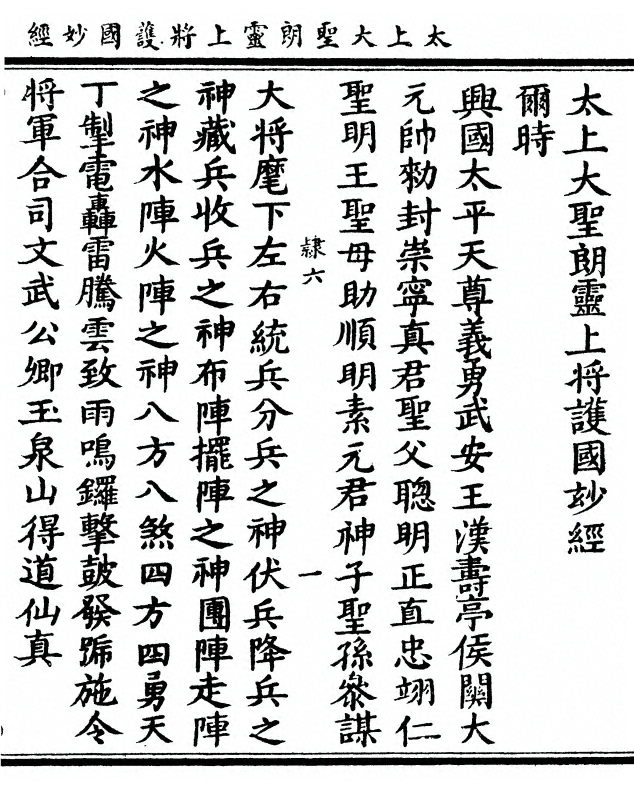 太上大聖朗靈上將護國妙經
太上大聖朗靈上将護國玅經
爾時
興國太平天尊義勇武安王漢壽亭侯關大
元帥勑封崇寧真君聖父聰明正直忠翊仁
聖明王聖母助順明素元君神子聖孫叅謀
隷六
一
大将麾下左右統兵分兵之神伏兵降兵之
神藏兵收兵之神布陣擺陣之神團陣走陣
之神水陣火陣之神八方八煞四方四勇天
丁掣電轟雷騰雲致雨鳴鑼擊鼓發號施令
将軍合司文武公卿玉泉山得道仙真